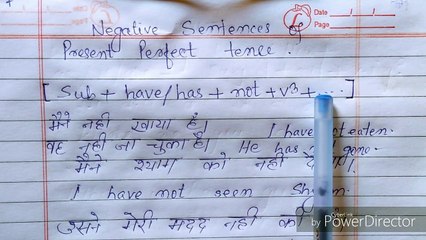 Negative Sentences of
Date
Page
Present Perfect tence.
[ Sub + have/has + not + v³ + ... ]
मैने नही खाया हैं। I have not eaten.
वह नही जा चुका है। He has gone.
मैने श्याम को नही
I have not seen
उसने मेरी मदद नही की
PowerDirector